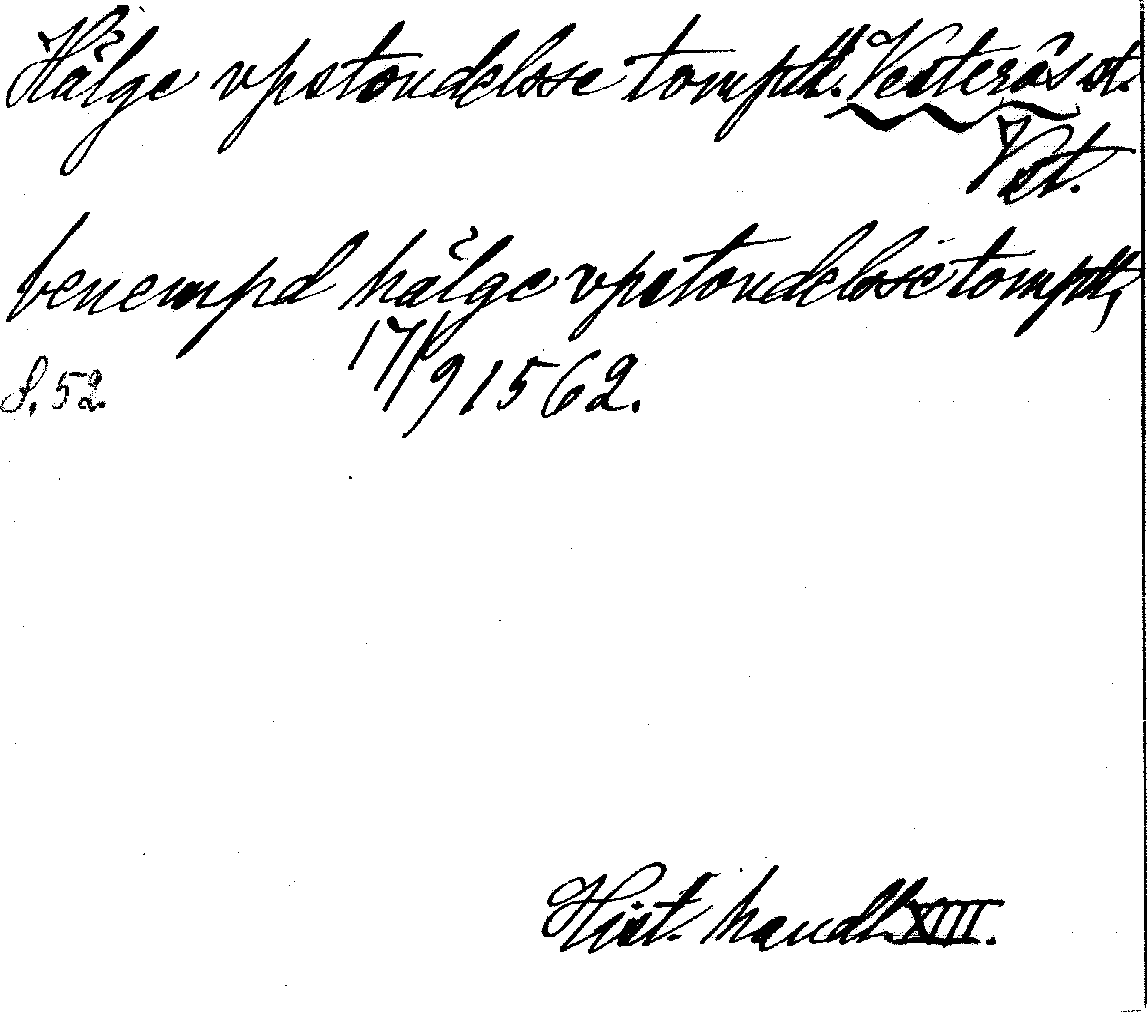 Hålge vpstondelsse tomptt. Vesterås st.
Vst.
benempd hålge vpstondelsse tomptt,
S. 52. 17/9 1562.
Hist. handl. XIII.